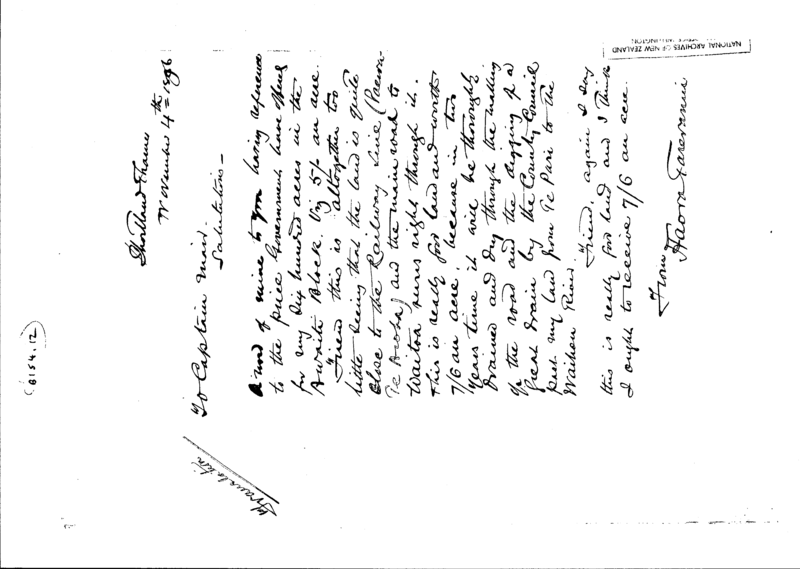 (8154.12)
Translation
Shortland Thames
November 4th 1896
To Captain Mair.
Salutations –
A word of mine to you having reference
to the price Government have offered
for my six hundred acres in the
Awaiti Block. Viz 5/- an acre.
Friend this is altogether too
little seeing that the land is quite
close to the Railway Line (Paeroa-
Te Aroha) and the main road to
Waitoa runs right through it.
This is really good land and worth
7/6 an acre, because in two
years time it will be thoroughly
drained and dry through the making
of the road and the digging of a
great drain by the County Council
past my land from Te Pari to the
Waihou River.
Friend, again I say
this is really good land and I think
I ought to receive 7/6 an acre.
From
Haora Tareranui
NATIONAL ARCHIVES OF NEW ZEALAND